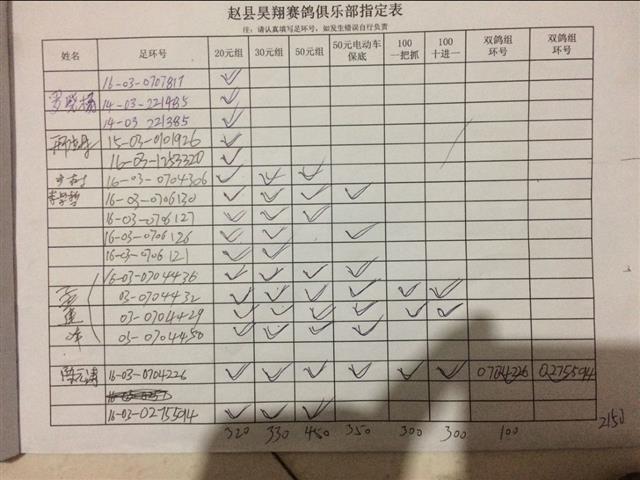 赵县昊翔赛鸽俱乐部指定表
注：请认真填写足环号、如发生错误自行负责
姓名 足环号 20元组 30元组 50元组 50元电动车保底 100一把抓 100十进一 双鸽组环号 双鸽组环号
16-03-0707817 ✓
14-03-221485 ✓
14-03 221385 ✓
15-03-0101926 ✓
16-03-1253320 ✓
16-03-0704306 ✓ ✓ ✓
16-03-0706130 ✓ ✓ ✓ ✓
16-03-0706127 ✓ ✓ ✓
16-03-0706126 ✓ ✓ ✓
16-03-0706121 ✓ ✓
16-03-0704436 ✓ ✓ ✓ ✓
03-0704432 ✓ ✓ ✓ ✓ ✓ ✓
03-0704429 ✓ ✓ ✓ ✓ ✓ ✓
03-0704450 ✓ ✓ ✓ ✓
16-03-0704226 ✓ ✓ ✓ ✓ ✓ ✓ 0704226 02755094
16-03-02755094 ✓ ✓ ✓
320 330 450 350 300 300 100 2150